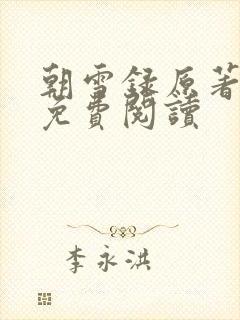 朝雪録原著
免費閱讀
李永洪